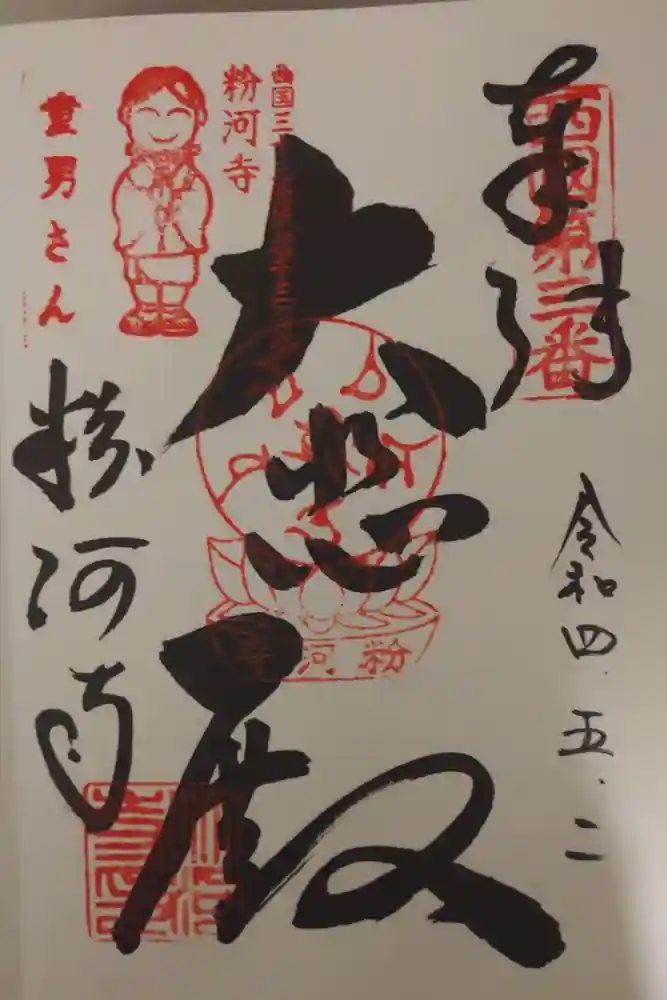 奉拝
西国第三番
令和四.五.二
大悲殿
粉河寺
西国三
粉河寺
童男さん
粉河寺